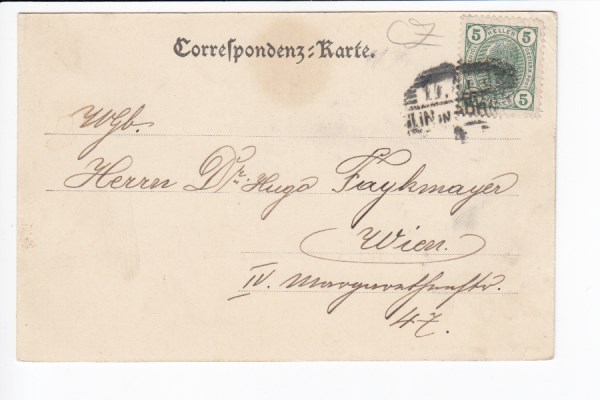 5 HELLER 5
5 5
Correspondenz-Karte.
LIN IN
Wgb.
Herrn Dr. Hugo Faykmayer
Wien.
IV. Margarethenstr.
47.